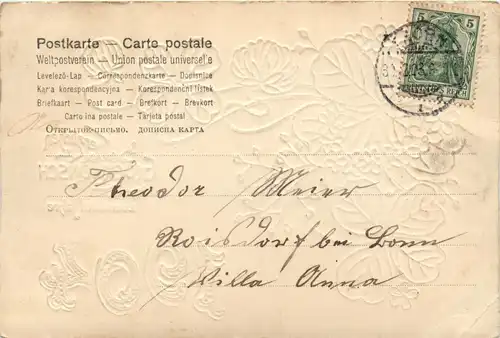 Postkarte – Carte postale
Weltpostverein – Union postale universelle
Levelező-Lap – Correspondenzkarte – Dopisnice
Karta korespondencyjna – Korespondenční lístek
Briefkaart – Post card – Brefkort – Brevkort
Cartolina postale – Tarjeta postal
Открытое письмо. дописна карта
5 5
Theodor Meier
Roisdorf bei Bonn
Villa Anna